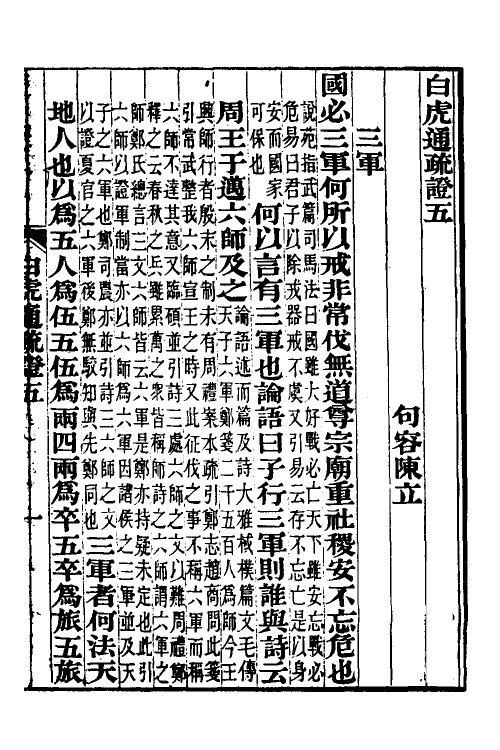 白虎通疏證五
句容陳立
三軍
國必三軍何所以戒非常伐無道尊宗廟重社稷安不忘危也
說苑指武篇司馬法曰國雖大好戰必亡天下雖安忘戰必
危易曰君子以除戎器戒不虞又引易云存不忘亡是以身
安而國家
可保也
何以言有三軍也論語曰子行三軍則誰與詩云
周王于邁六師及之
論語述而篇及詩大雅棫樸篇文毛傳
天子六軍鄭箋二千五百人為師今王
興師行者殷末之制未有周禮案本疏引鄭志趙商問此箋
引常武整我六師宣王之時又此征伐之事不稱六軍而稱
六師不達其意又臨碩並引詩三處六師之文以難周禮鄭
釋之云春秋之兵雖累萬之衆皆稱師詩之六師謂六軍之
師鄭氏總言三文六師皆云六軍是鄭亦持疑未定也此引
六師以證軍制當亦以六師為六軍因諸侯之三軍並及天
子之六軍也鄭司農亦並引詩三六師之文
以證夏官之六軍後鄭無駁知與先鄭同也
三軍者何法天
地人也以為五人為伍五伍為兩四兩為卒五卒為旅五旅
白虎通疏證五
一